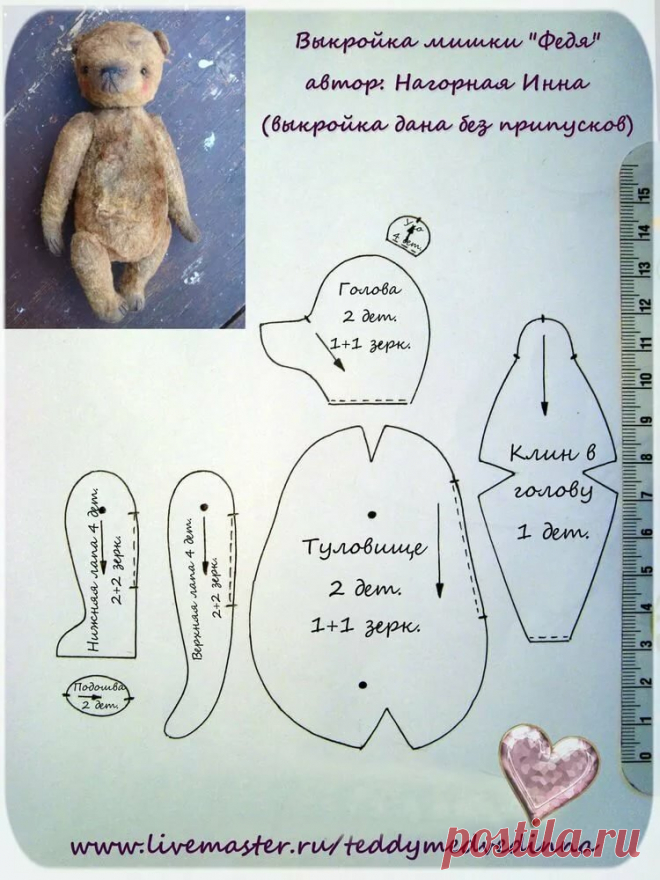 Выкройка мишки "Федя"
автор: Нагорная Инна
(выкройка дана без припусков)
Ухо
4 дет.
Голова
2 дет.
1+1 зерк.
Клин в
голову
1 дет.
Туловище
2 дет.
1+1 зерк.
Нижняя лапа 4 дет.
2+2 зерк.
Верхняя лапа 4 дет.
2+2 зерк.
Подошва
2 дет.
15
14
13
12
11
10
9
8
7
6
5
4
3
2
1
0
www.livemaster.ru/teddymedvedinna
postila.ru